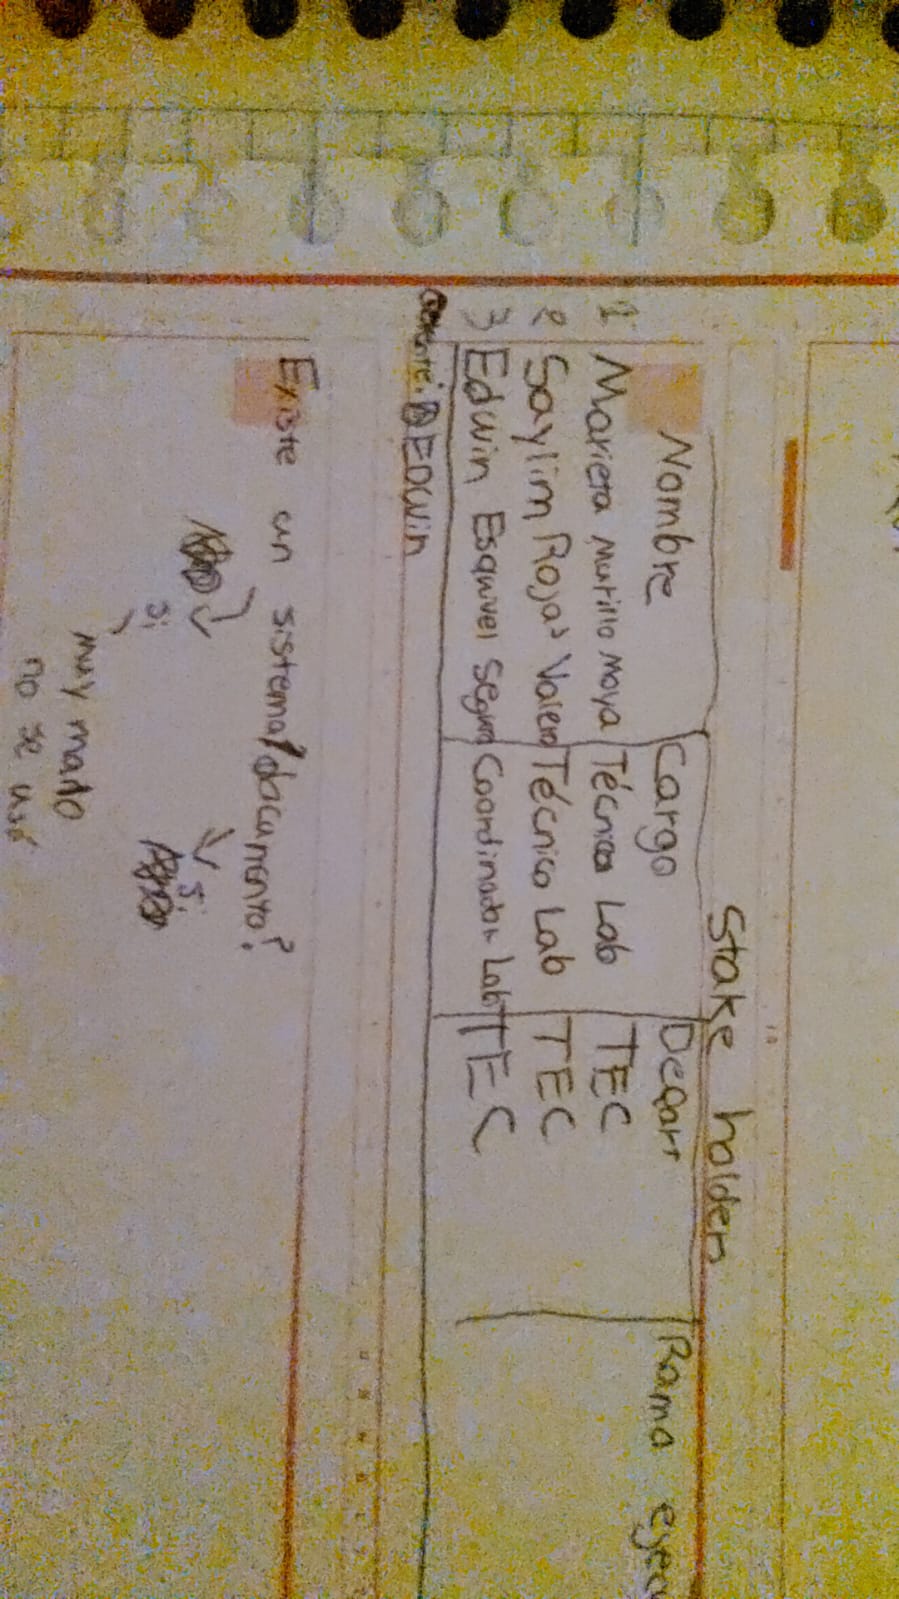 Stake holders
Nombre Cargo Depart Rama ejecu
1 Marieta Murillo Moya Técnico Lab TEC
2 Saylim Rojas Valerio Técnico Lab TEC
3 Edwin Esquivel Segura Coordinador Lab TEC
EDWIN
Existe un sistema/documento?
Si Si
muy malo
no se usa